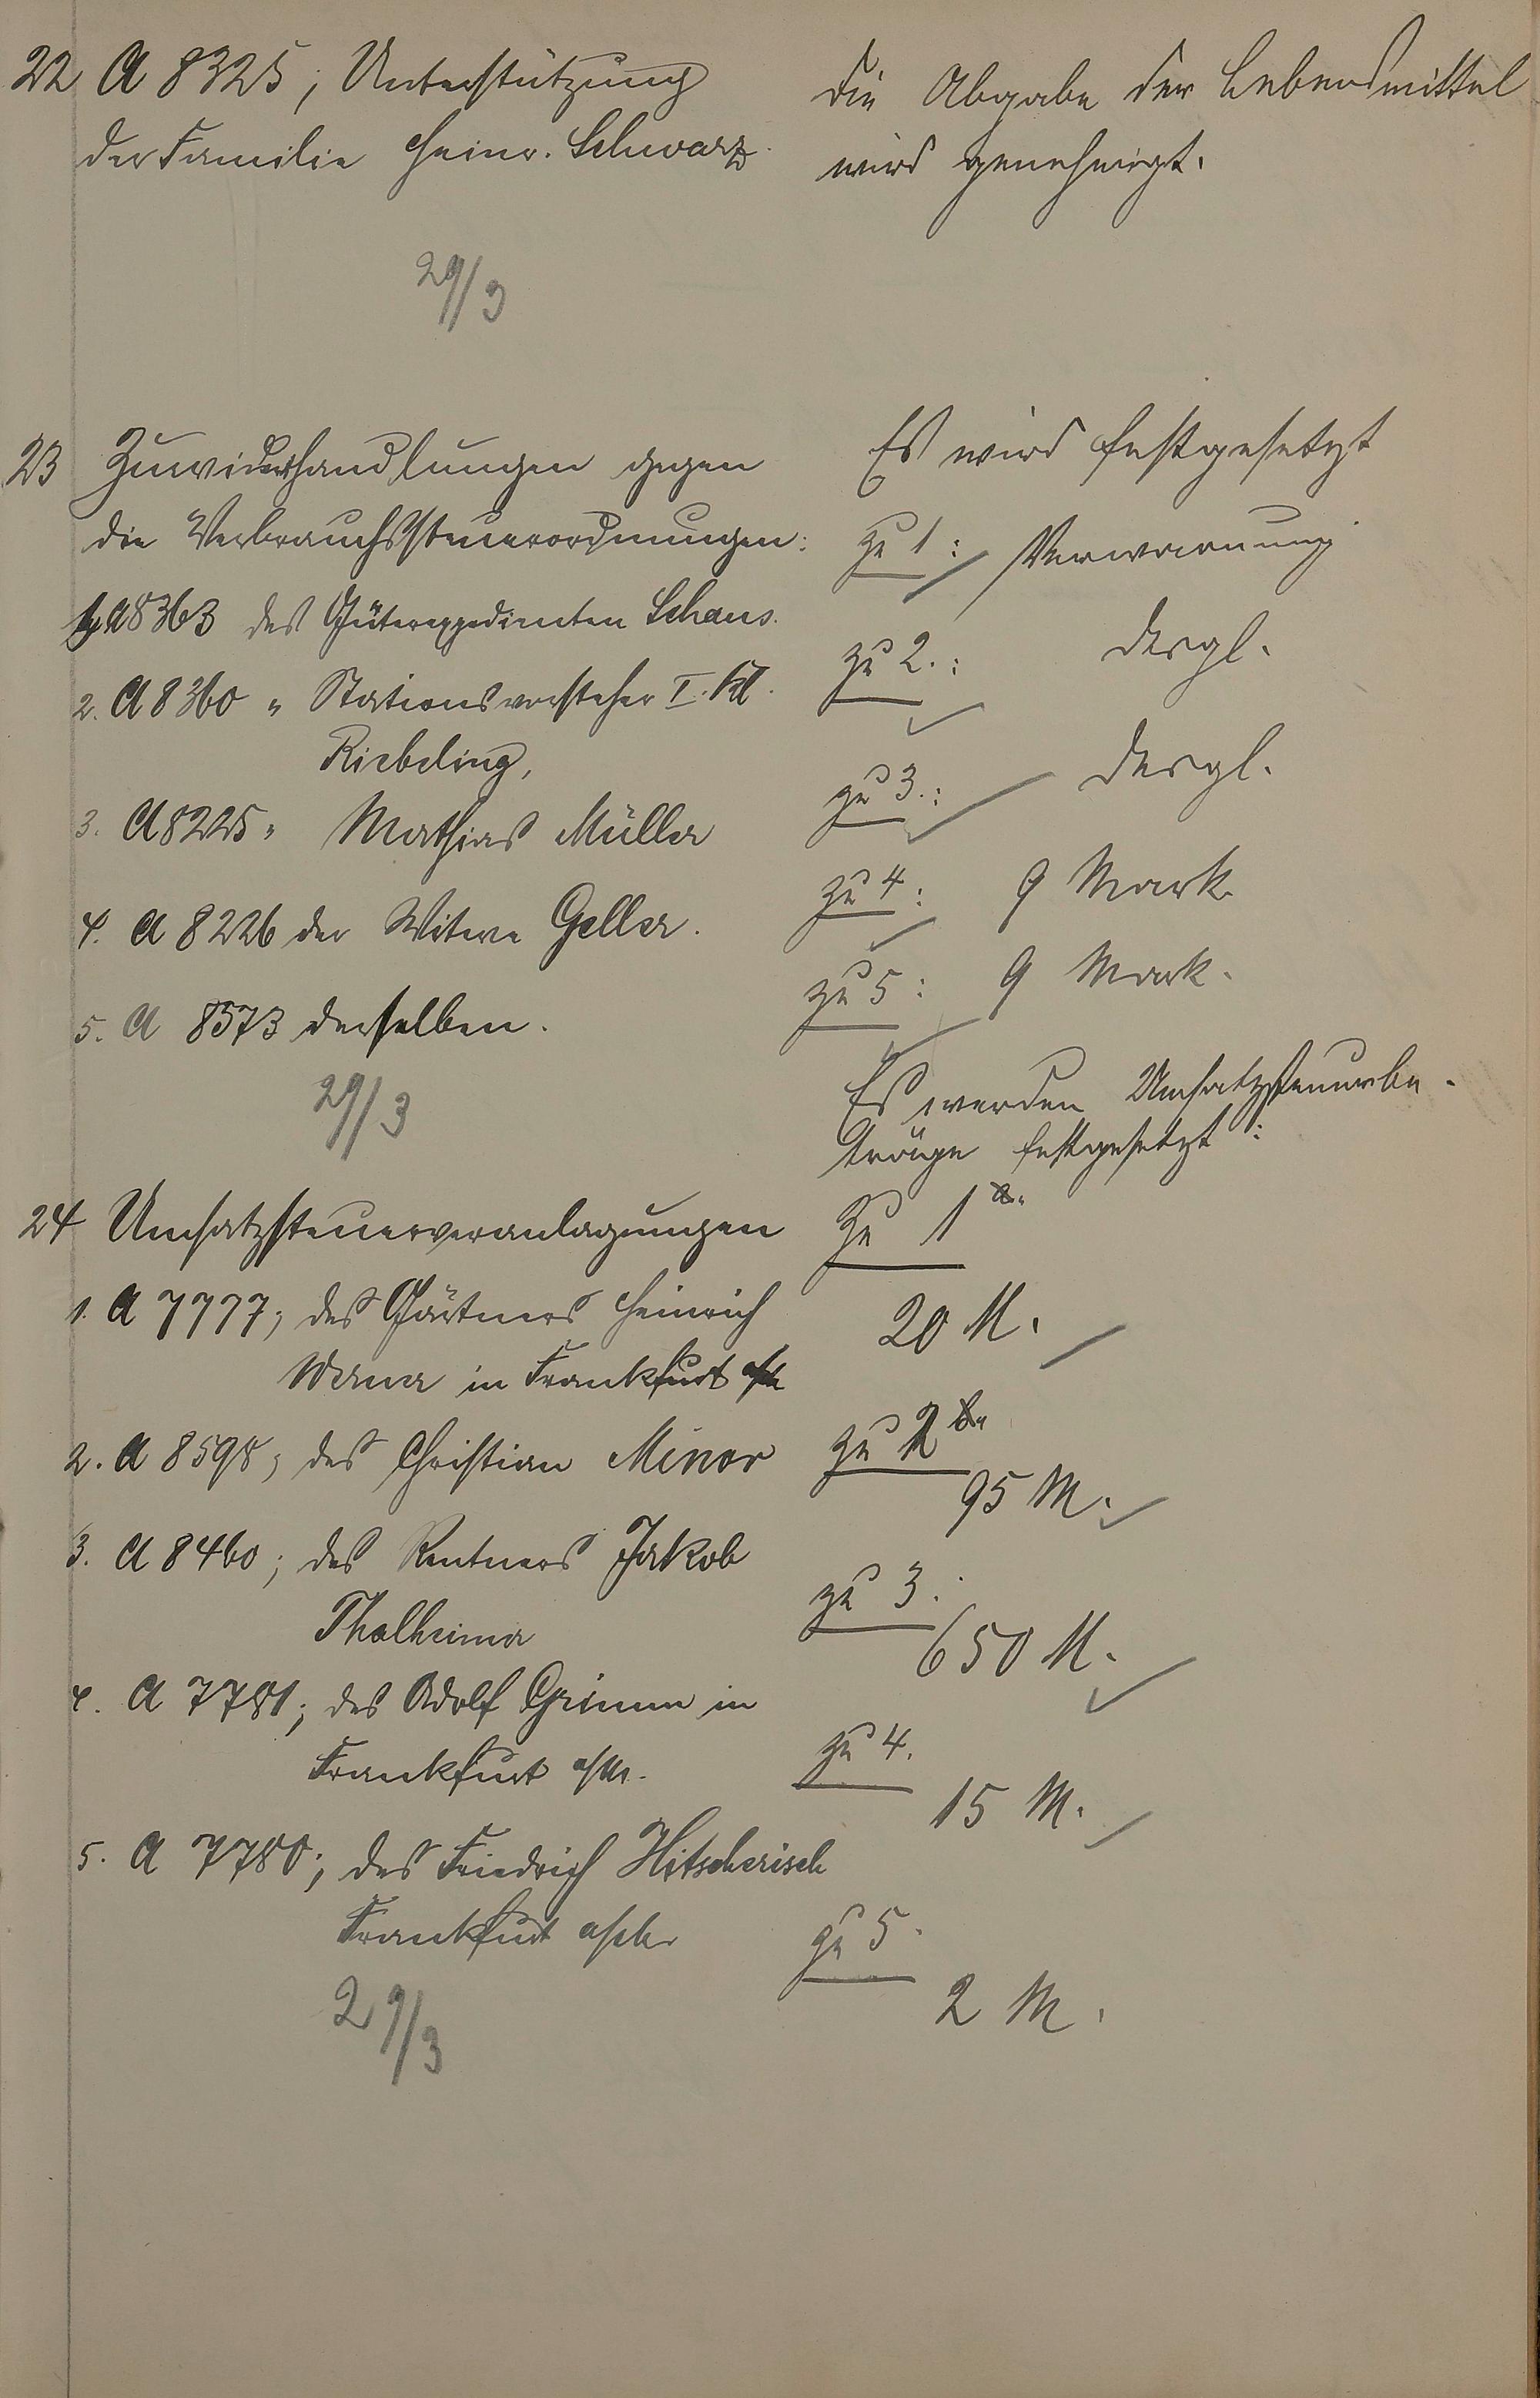 22 A 8325; Unterstützung
der Familie Heinr. Schwarz.
Die Abgabe der Lebensmittel
wird genehmigt.
29/3
23 Zuwiderhandlungen gegen
die Verbrauchssteuerordnungen:
1. A 8363 des Güterexpedienten Schaus.
2. A 8360 " Stationsvorsteher I. Kl.
Riebeling,
3. A 8225 " Mathias Müller
4. A 8226 der Witwe Geller.
5. A 8573 derselben.
29/3
Es wird festgesetzt
zu 1: Verwarnung
zu 2.: desgl.
zu 3.: desgl.
zu 4: 9 Mark.
zu 5: 9 Mark.
24 Umsatzsteuerveranlagungen
1. A 7777; des Gärtners Heinrich
in Frankfurt
2. A 8598; des Christian Minor
3. A 8460; des Rentners Jakob
Thalheimer
4. A 7781; des Adolf Grimm in
Frankfurt a/M.
5. A 7780; des Friedrich Hitscherich
Frankfurt a/M.
29/3
Es werden Umsatzsteuerbe-
träge festgesetzt:
Zu 1
20 M.
zu 2
95 M.
zu 3.
650 M.
zu 4.
15 M.
zu 5.
2 M.